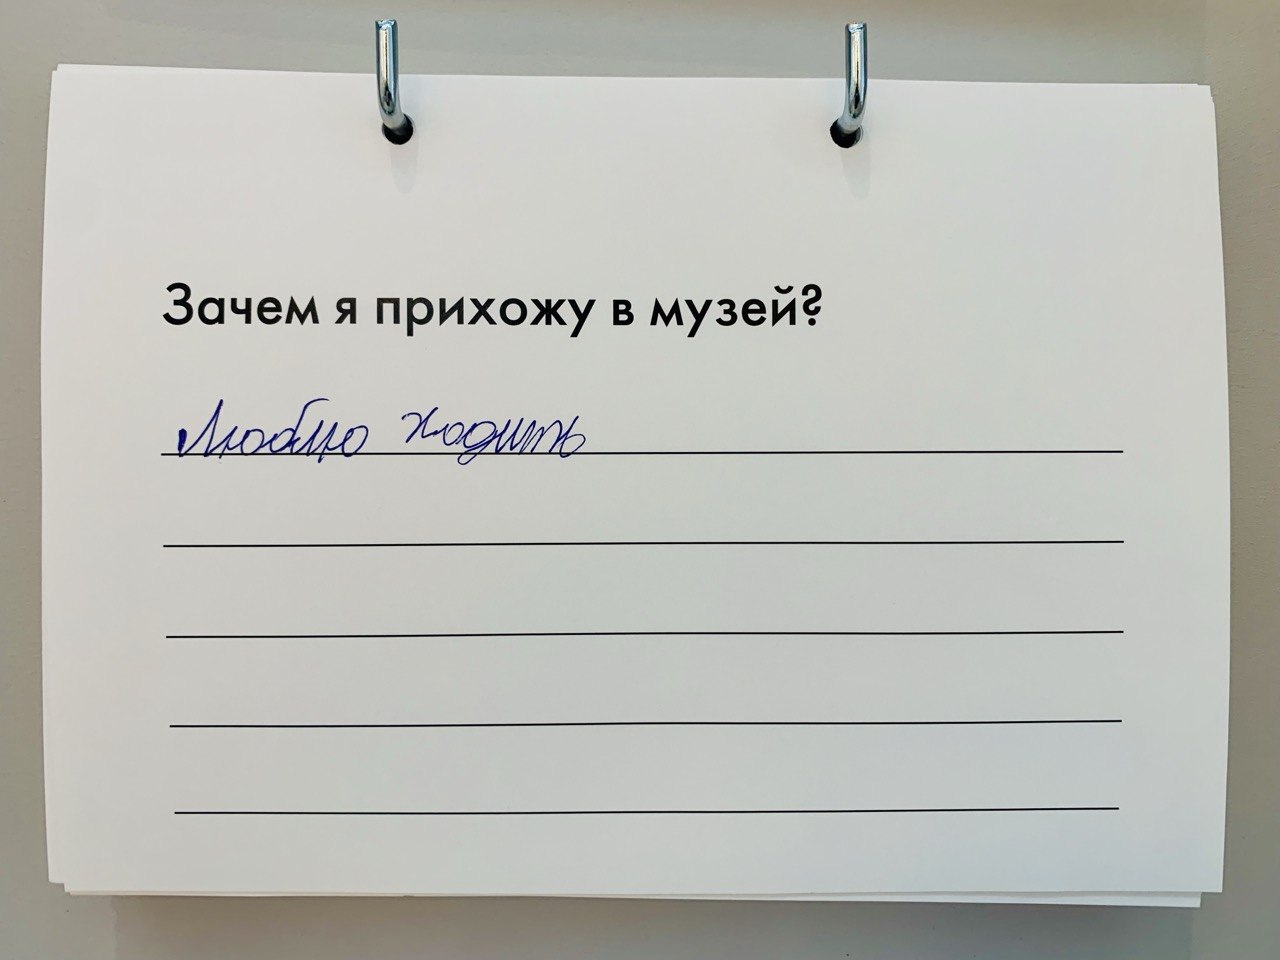 Зачем я прихожу в музей?
Люблю ходить